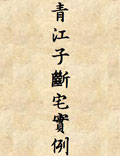 青江子斷宅實例